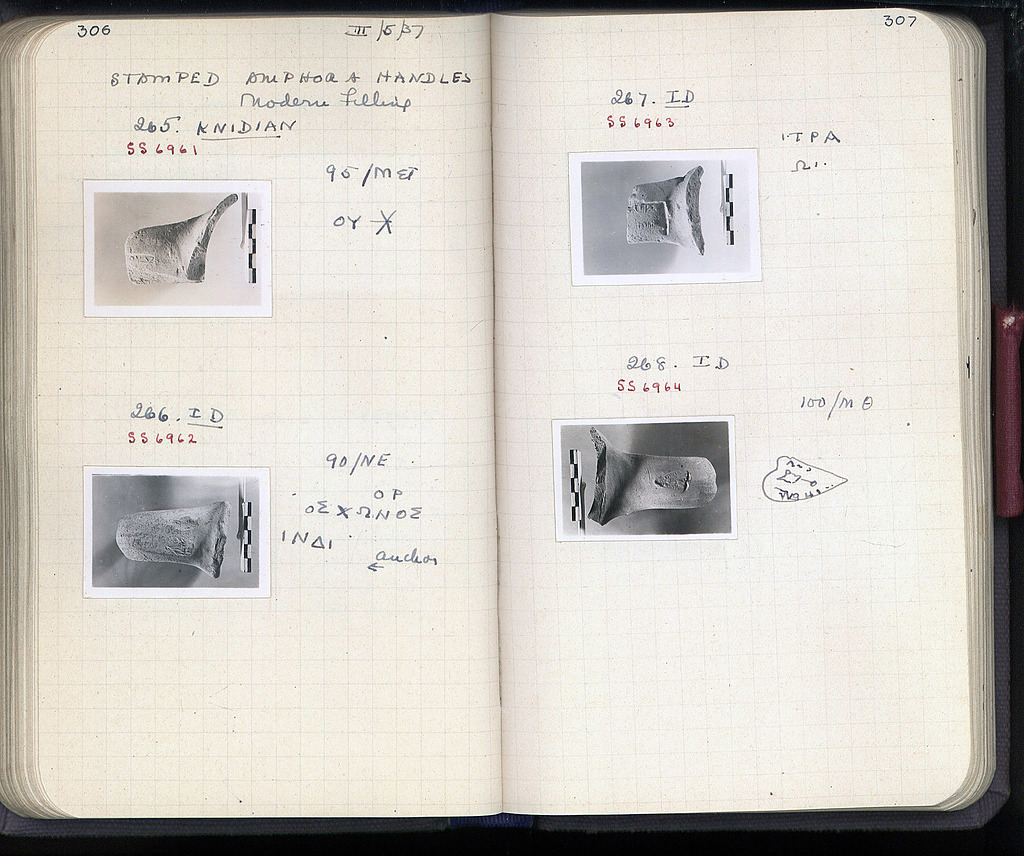 306
III/5/37
STAMPED AMPHORA HANDLES
Modern Filling
265. KNIDIAN
SS 6961
95/ΜΕΤ
ΟΥ
266. ID
SS 6962
90/ΝΕ
ΟΡ
ΟΣ ΧΩΝΟΣ
ΙΝΔΙ
anchor
←
307
267. ID
SS 6963
ΙΤΡΑ
Ω
268. ID
SS 6964
100/ΜΘ